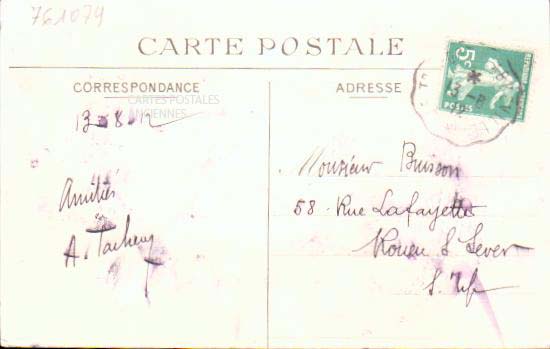 761079
CARTE POSTALE
CORRESPONDANCE
CARTES POSTALES
ANCIENNES
13-8-12
Amitiés
ADRESSE
5c
POSTES
Monsieur Buisson
58 - Rue Lafayette
Rouen S Sever
S. Infre